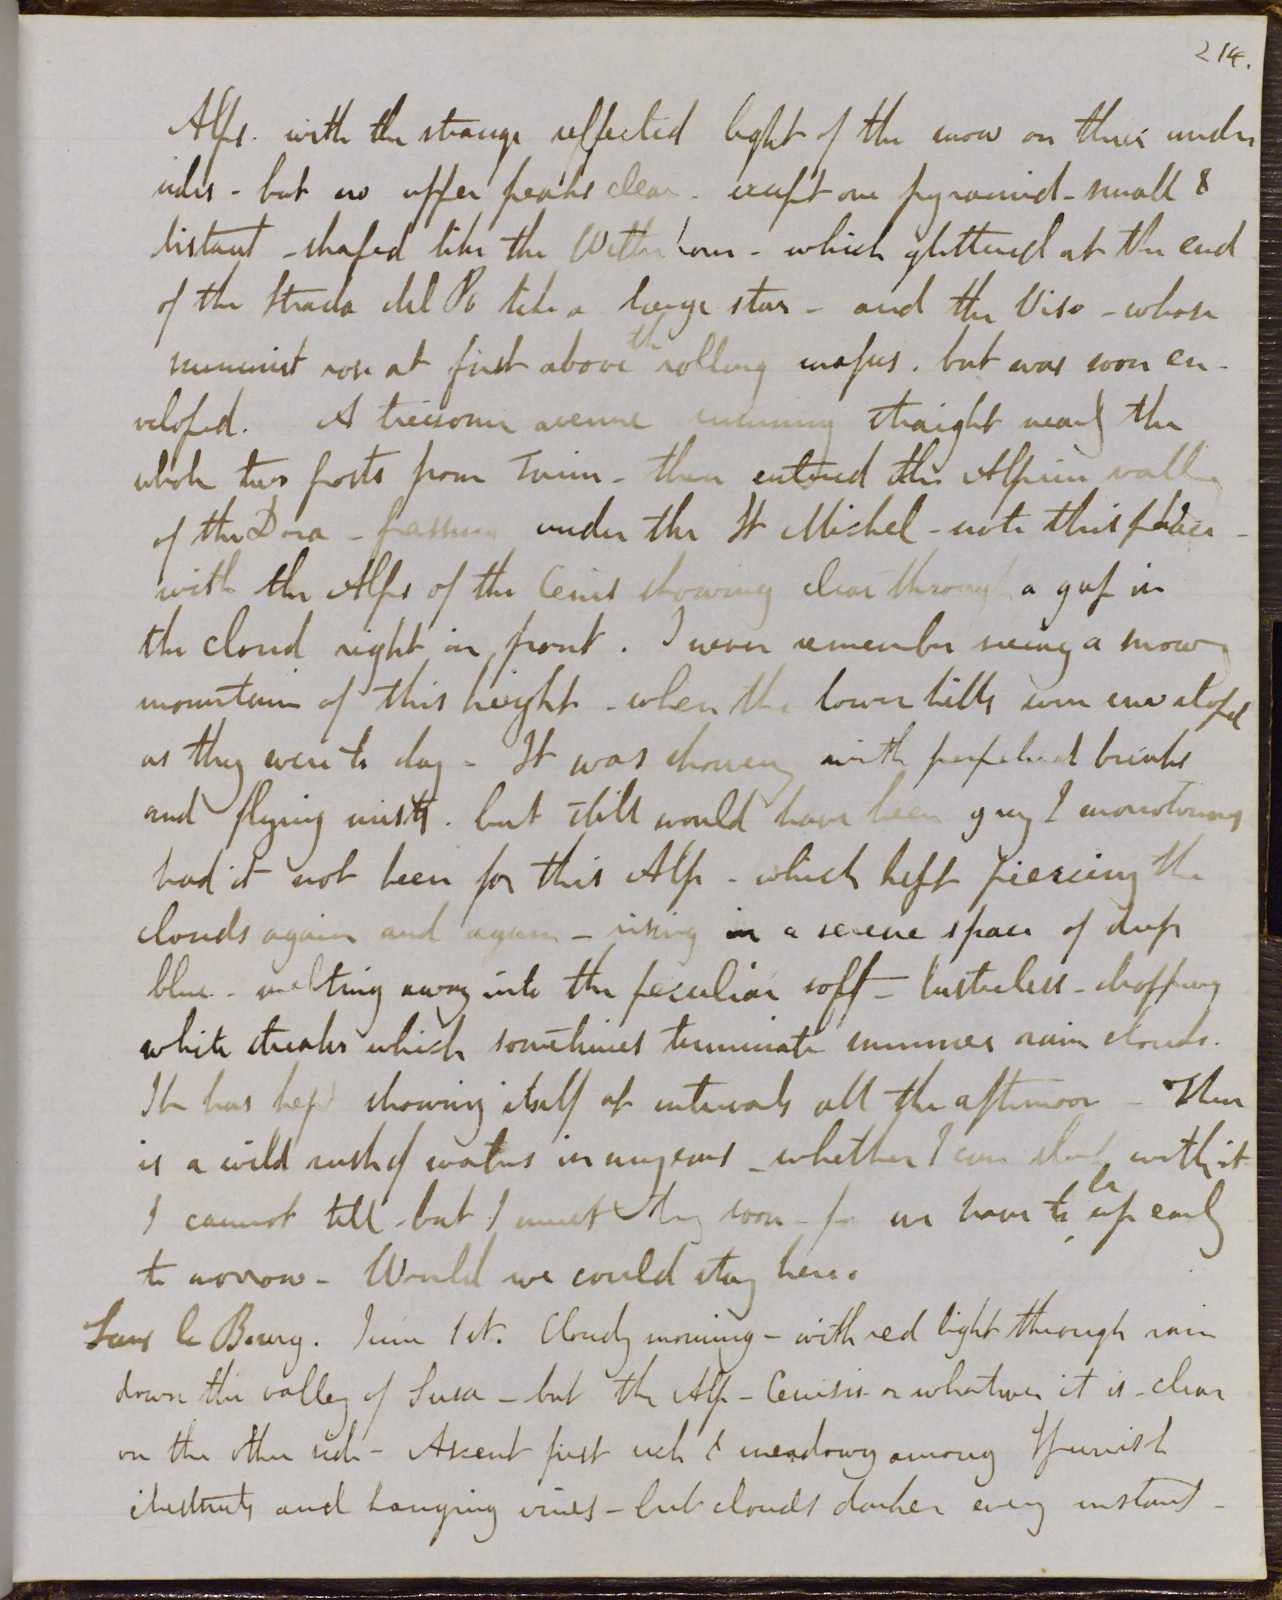 214.
Alps. with the strange reflected light of the snow on their under
sides - but no upper peaks clear - except one pyramid - small &
distant - shaped like the Wetterhorn - which glittered at the end
of the Strada del Po like a large star - and the Viso - whose
summit rose at first above the rolling masses. but was soon en-
veloped. A treesome avenue running straight nearly the
whole two posts from Turin - then entered the Alpine valley
of the Dora - passing under the St Michel - note this place -
with the Alps of the Cenis showing clear through a gap in
the cloud right in front. I never remember seeing a snowy
mountain of this height - when the lower hills were enveloped
as they were to day - It was showery with perpetual breaks
and flying mists. but still would have been grey & monotonous
had it not been for this Alp - which kept piercing the
clouds again and again - rising in a serene space of deep
blue - melting away into the peculiar soft - lustreless - dropping
white streaks which sometimes terminate summer rain clouds.
It has kept showing itself at intervals all the afternoon - There
is a wild rush of waters in my ears - whether I can sleep with it
I cannot tell - but I must try soon - for we have to be up early
to morrow - Would we could stay here.
Lans le Bourg. June 1st. Cloudy morning - with red light through rain
down the valley of Susa - but the Alp - Cenisis or whatever it is - clear
on the other side - Ascent first rich & meadowy among Spanish
chestnuts and hanging vines - but clouds darker every instant -